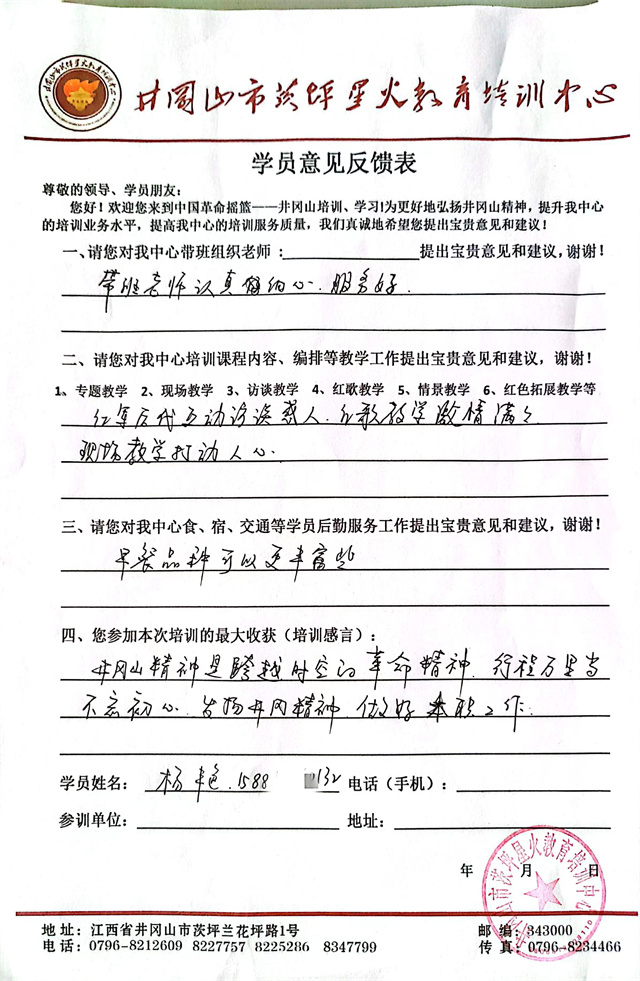 井冈山市茨坪星火教育培训中心
学员意见反馈表
尊敬的领导、学员朋友：
您好！欢迎您来到中国革命摇篮——井冈山培训、学习！为更好地弘扬井冈山精神，提升我中心
的培训业务水平，提高我中心的培训服务质量，我们真诚地希望您提出宝贵意见和建议！
一、请您对我中心带班组织老师：提出宝贵意见和建议，谢谢！
带班老师认真细心．服务好．
二、请您对我中心培训课程内容、编排等教学工作提出宝贵意见和建议，谢谢！
1、专题教学 2、现场教学 3、访谈教学 4、红歌教学 5、情景教学 6、红色拓展教学等
红军后代互动访谈感人．红歌教学激情满满
现场教学打动人心．
三、请您对我中心食、宿、交通等学员后勤服务工作提出宝贵意见和建议，谢谢！
早餐品种可以更丰富些
四、您参加本次培训的最大收获（培训感言）：
井冈山精神是跨越时空的革命精神．行程万里当
不忘初心．发扬井冈精神．做好本职工作．
学员姓名：杨艳.1588 132 电话（手机）：
参训单位： 地址：
年 月 日
井冈山市茨坪星火教育培训中心
地 址：江西省井冈山市茨坪兰花坪路1号 邮 编：343000
电 话：0796-8212609 8227757 8225286 8347799 传 真：0796-8234466